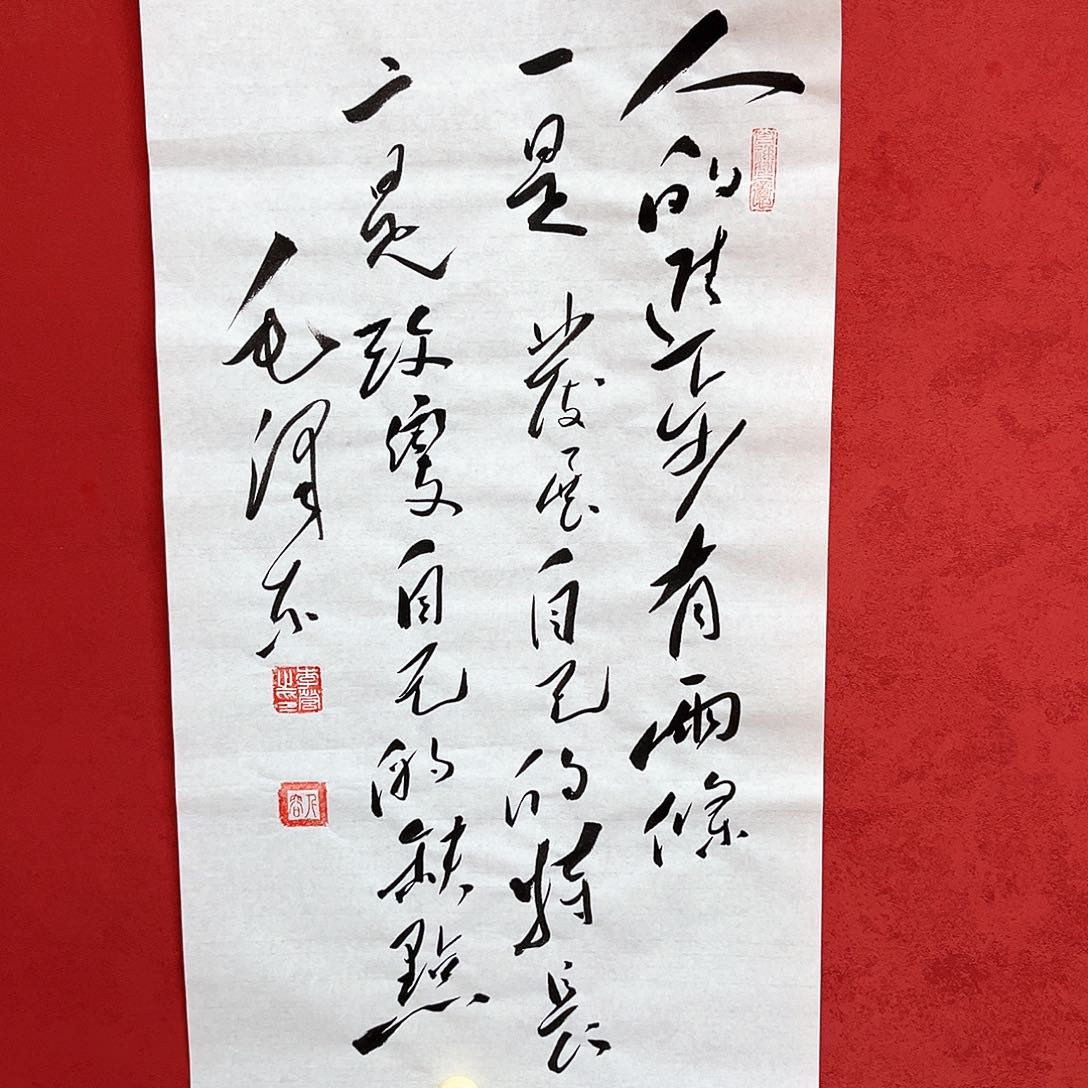 人的進步有兩條
一是發展自己的特長
二是改變自己的缺點
毛澤东